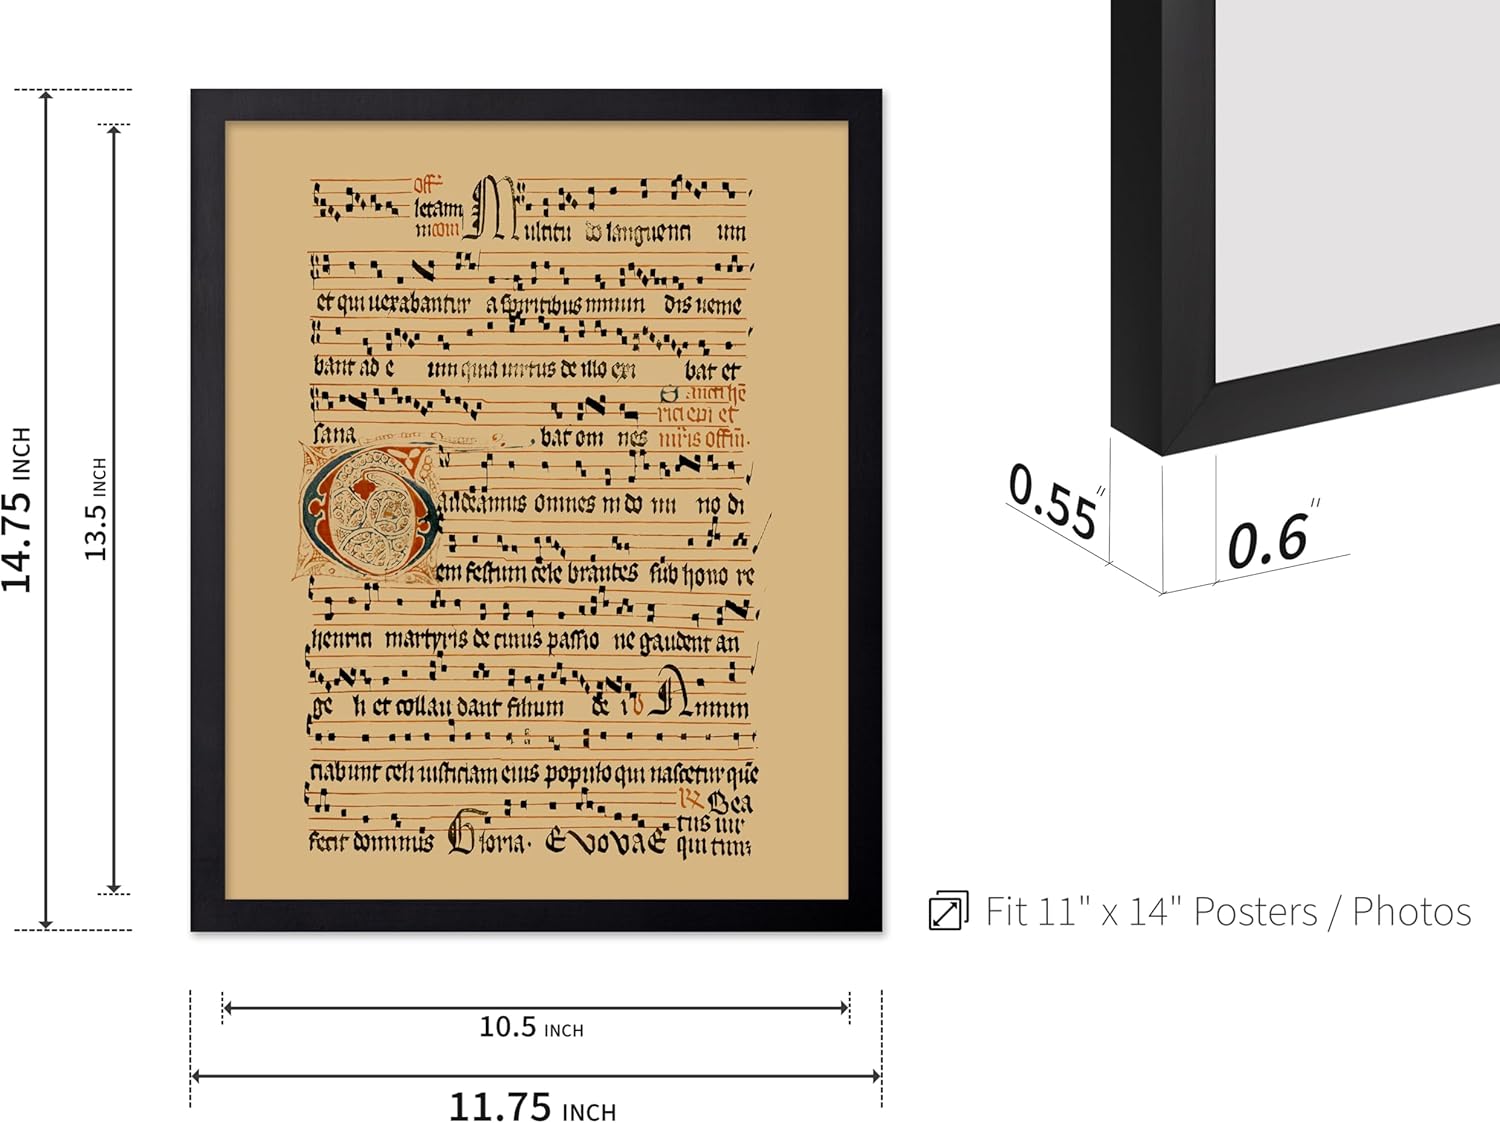 Off
letam
m com Multitu do languenti um
et qui uexabantur a spiritibus inmun dis ueme
bant ad e um quia uirtus de illo exi bat et
Sancti hē
rici epi et
sana bat om nes mr̄is offm.
Gaudeamus omnes in do mi no di
em festum cele brantes sub hono re
henrici martyris de cuius passio ne gaudent an
ge li et collau dant filium de i Annun
ciabunt celi iusticiam eius populo qui nascetur quē
Bea
tus uir
fecit dominus Gloria. EVOVAE qui tim;
14.75 INCH
13.5 INCH
10.5 INCH
11.75 INCH
0.55"
0.6"
Fit 11" x 14" Posters / Photos